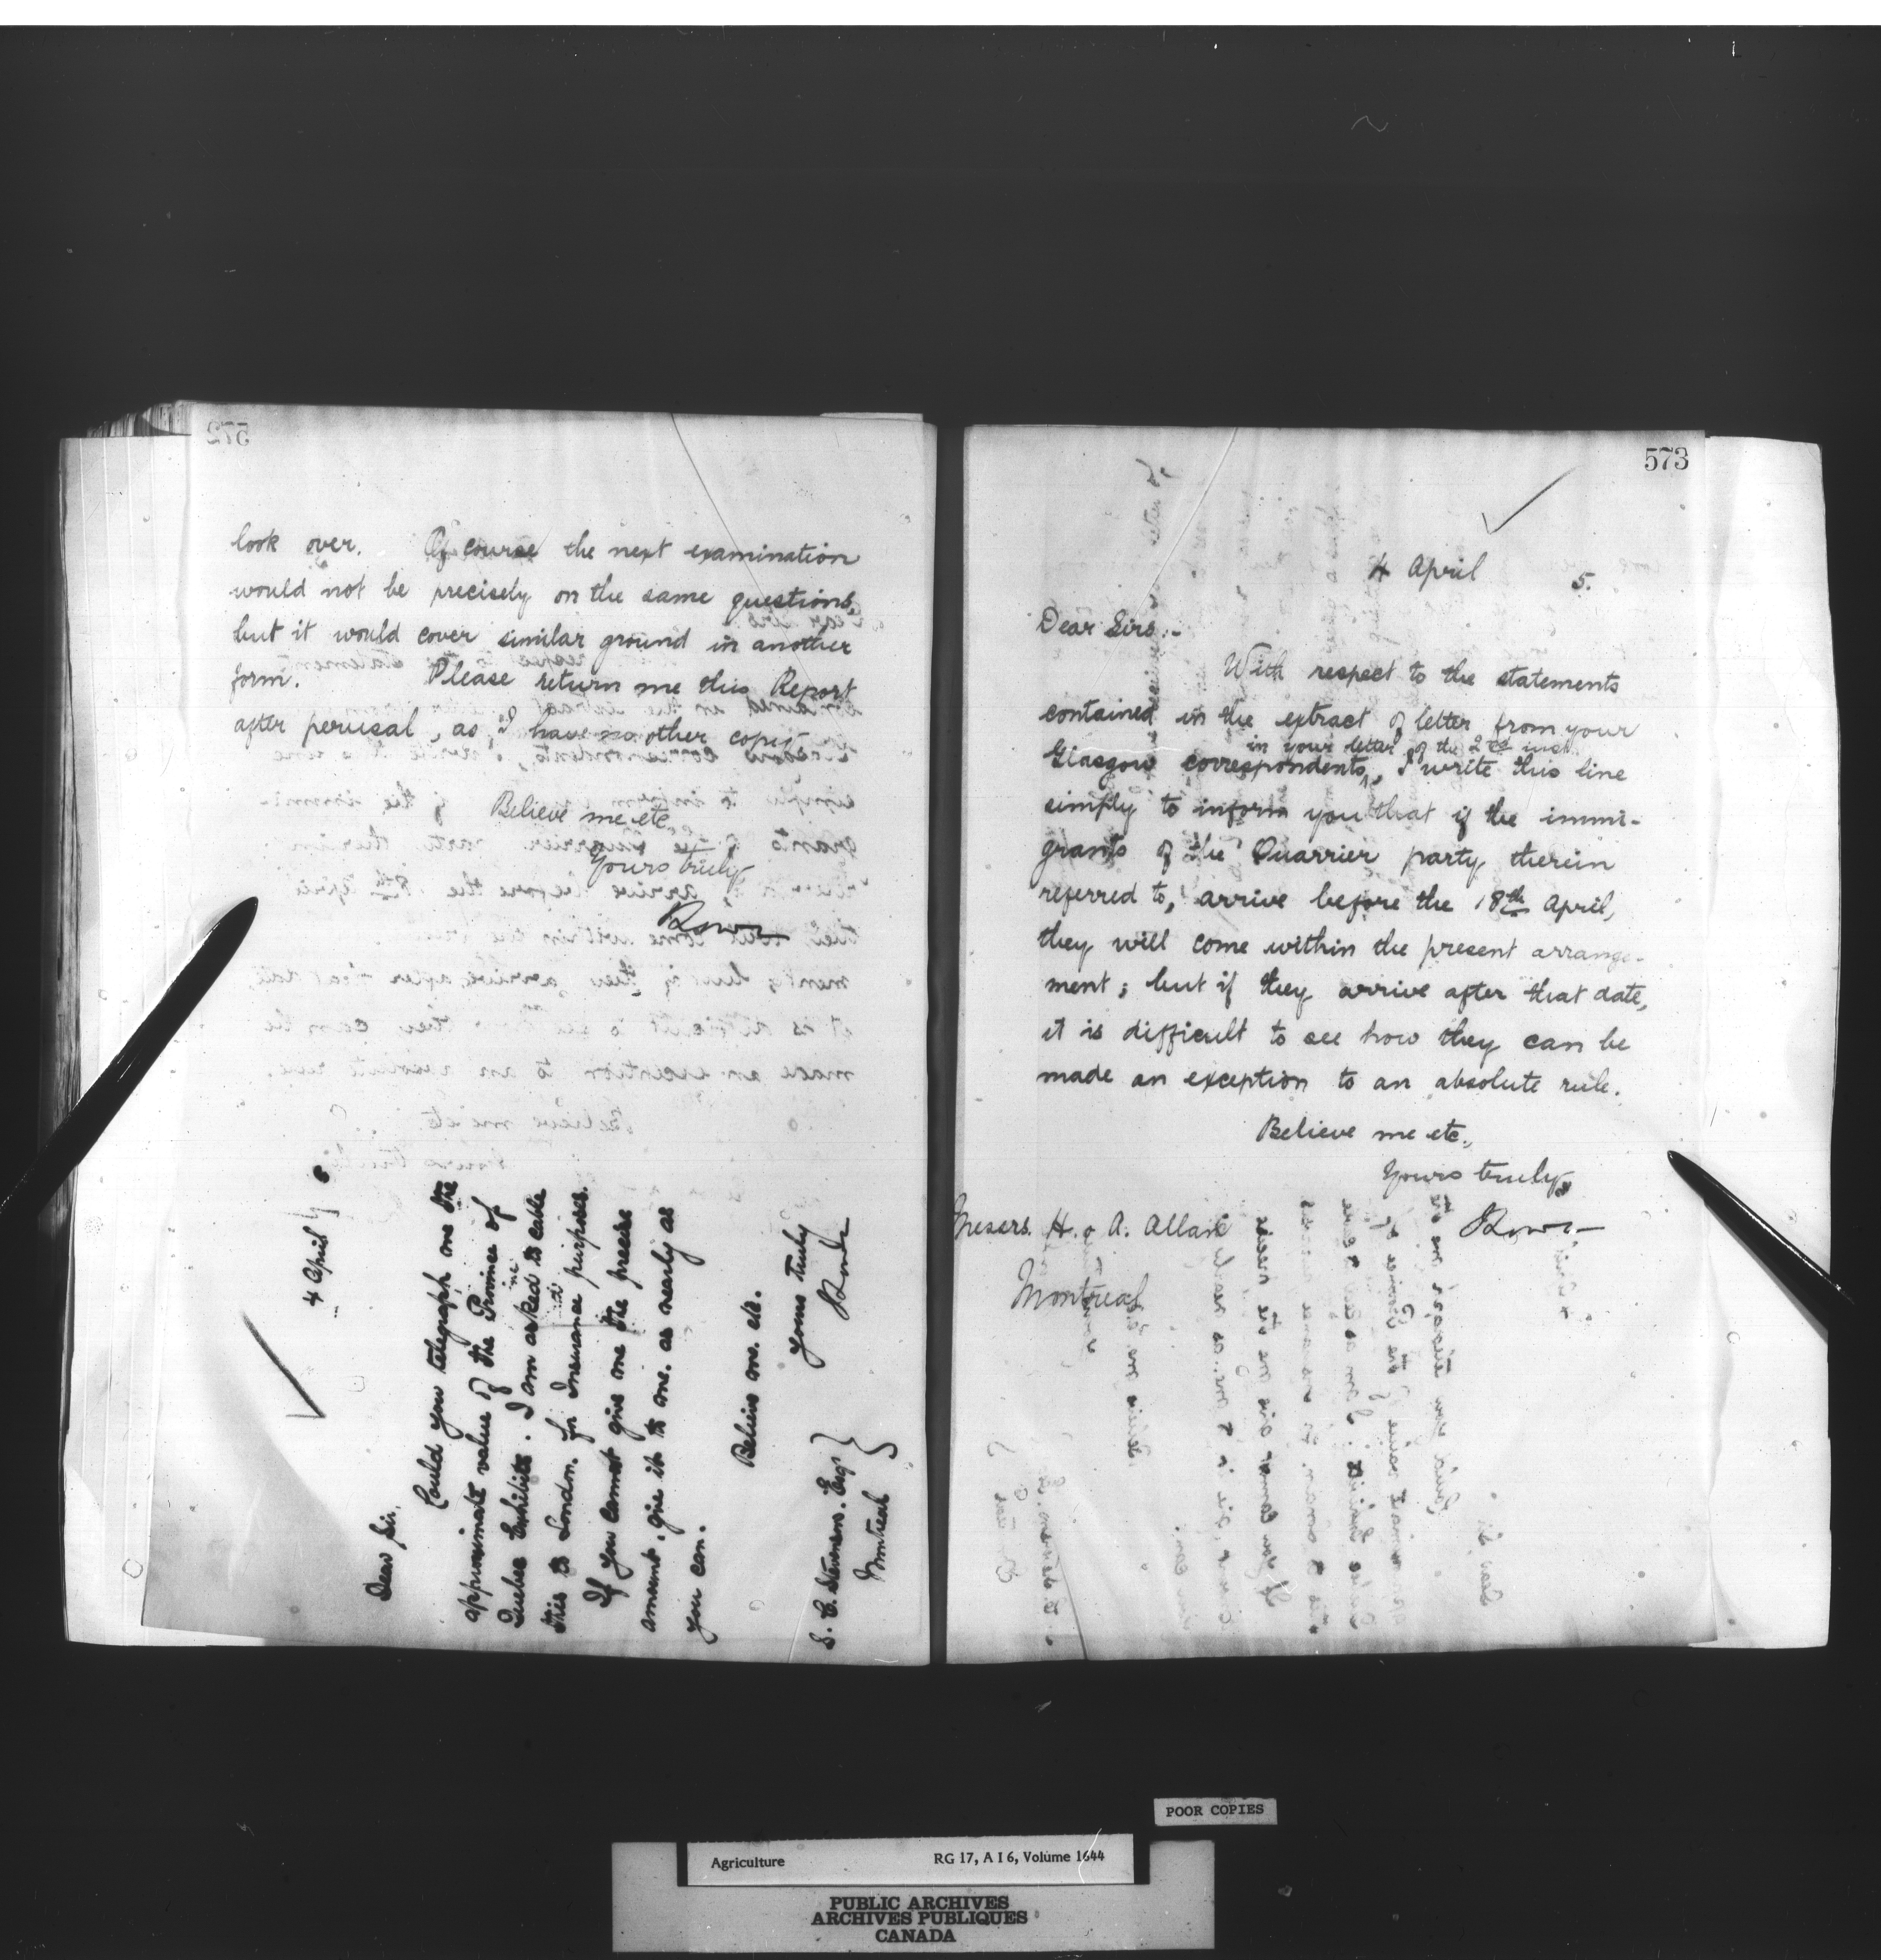 572
look over. Of course the next examination
would not be precisely on the same questions,
but it would cover similar ground in another
form. Please return me this Report
after perusal, as I have no other copy.
Believe me etc
Yours truly
4 April 6
Dear Sir,
Could you telegraph me the
approximate value of the Province of
Quebec Exhibits. I am asked to cable
this to London for Insurance purposes.
If you cannot give me the precise
amount, give it to me as nearly as
you can.
Believe me. etc.
Yours truly
S. C. Stevenson. Esqr
Montreal
573
4 April 5.
Dear Sirs:-
With respect to the statements
contained in the extract of letter from your
in your letter of the 2nd inst.
Glasgow correspondents, I write this line
simply to inform you that if the immi-
grants of the Quarrier party therein
referred to, arrive before the 18th April,
they will come within the present arrange-
ment; but if they arrive after that date,
it is difficult to see how they can be
made an exception to an absolute rule.
Believe me etc.,
Yours truly,
Messrs. H. & A. Allan
Montreal
POOR COPIES
Agriculture RG 17, A I 6, Volume 1644
PUBLIC ARCHIVES
ARCHIVES PUBLIQUES
CANADA